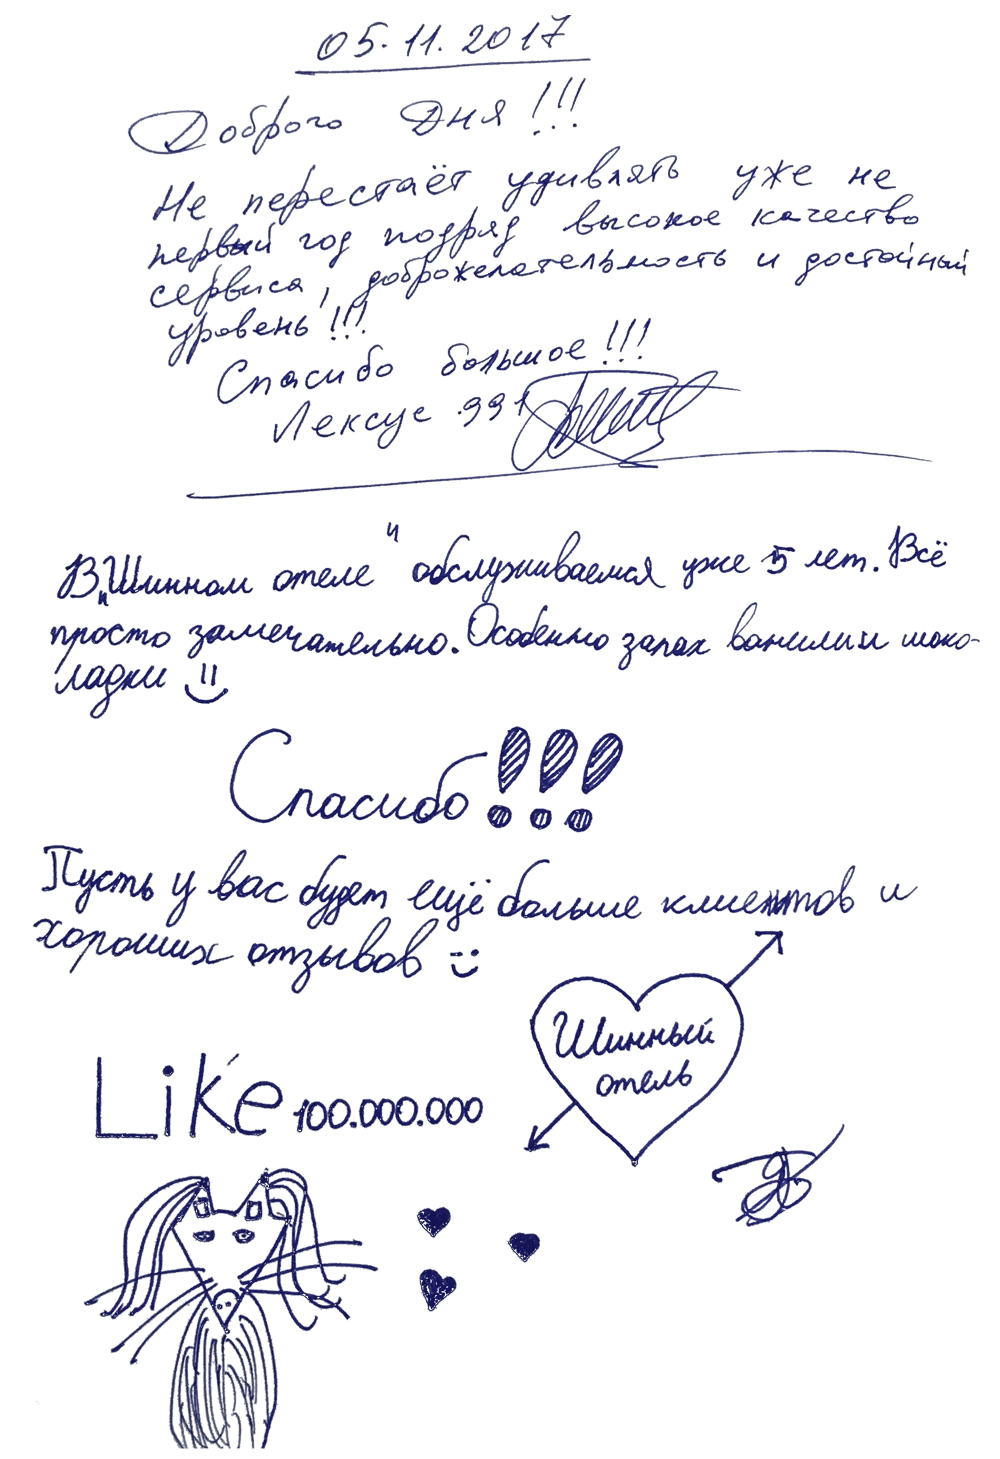 05.11.2017
Доброго Дня!!!
Не перестаёт удивлять уже не
первый год подряд высокое качество
сервиса, доброжелательность и достойный
уровень!!!
Спасибо большое!!!
Лексус 991
В "Шинном отеле" обслуживаемся уже 5 лет. Всё
просто замечательно. Особенно запах ванили и шоко-
ладки
Спасибо!!!
Пусть у вас будет ещё больше клиентов и
хороших отзывов
Шинный
отель
Like 100.000.000